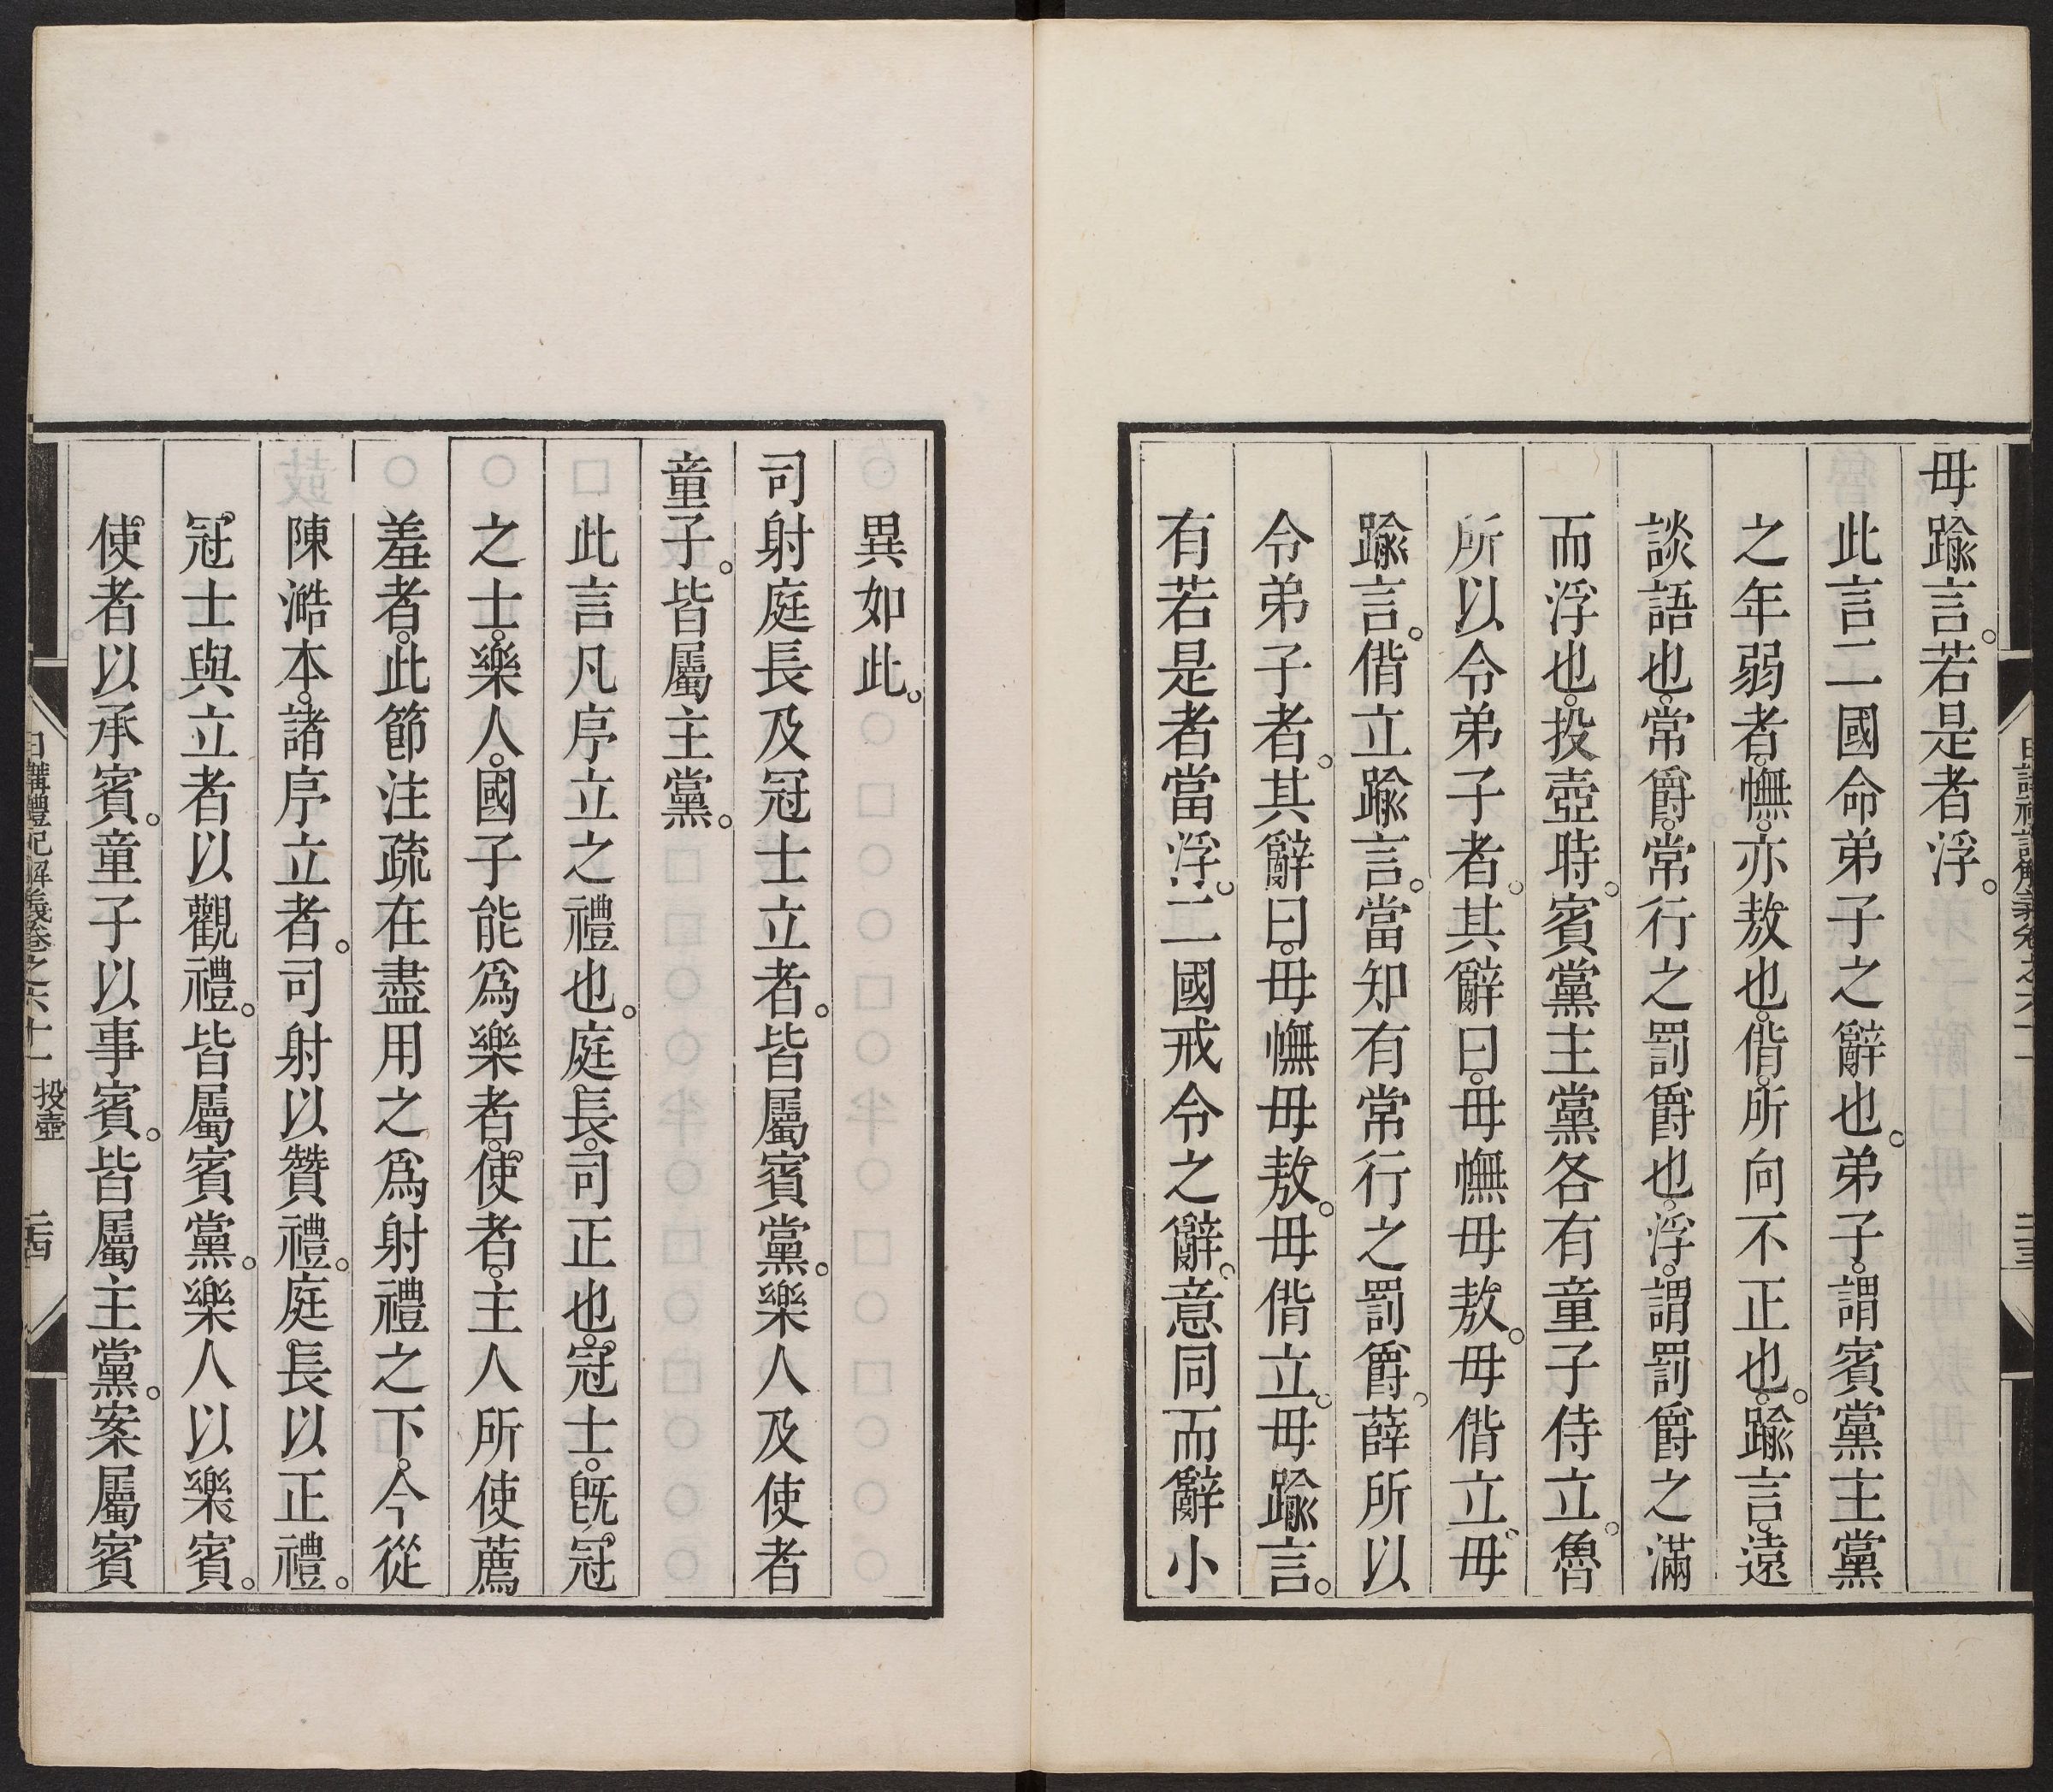 毋踰言。若是者浮。
此言二國命弟子之辭也。弟子。謂賓黨主黨
之年弱者。憮。亦敖也。偝。所向不正也。踰言。遠
談語也。常爵。常行之罰爵也。浮。謂罰爵之滿
而浮也。投壺時。賓黨主黨各有童子侍立。魯
所以令弟子者。其辭曰。毋憮毋敖。毋偝立。毋
踰言。偝立踰言。當知有常行之罰爵。薛所以
令弟子者。其辭曰。毋憮毋敖。毋偝立。毋踰言。
有若是者當浮。二國戒令之辭。意同而辭小
異如此。
司射庭長及冠士立者。皆屬賓黨。樂人及使者
童子。皆屬主黨。
此言凡序立之禮也。庭長。司正也。冠士。旣冠
之士。樂人。國子能爲樂者。使者。主人所使薦
羞者。此節注疏在盡用之爲射禮之下。今從
陳澔本。諸序立者。司射以贊禮。庭長以正禮。
冠士與立者以觀禮。皆屬賓黨。樂人以樂賓。
使者以承賓。童子以事賓。皆屬主黨。案屬賓
日講禮記解義卷之六十一 投壺 二十四